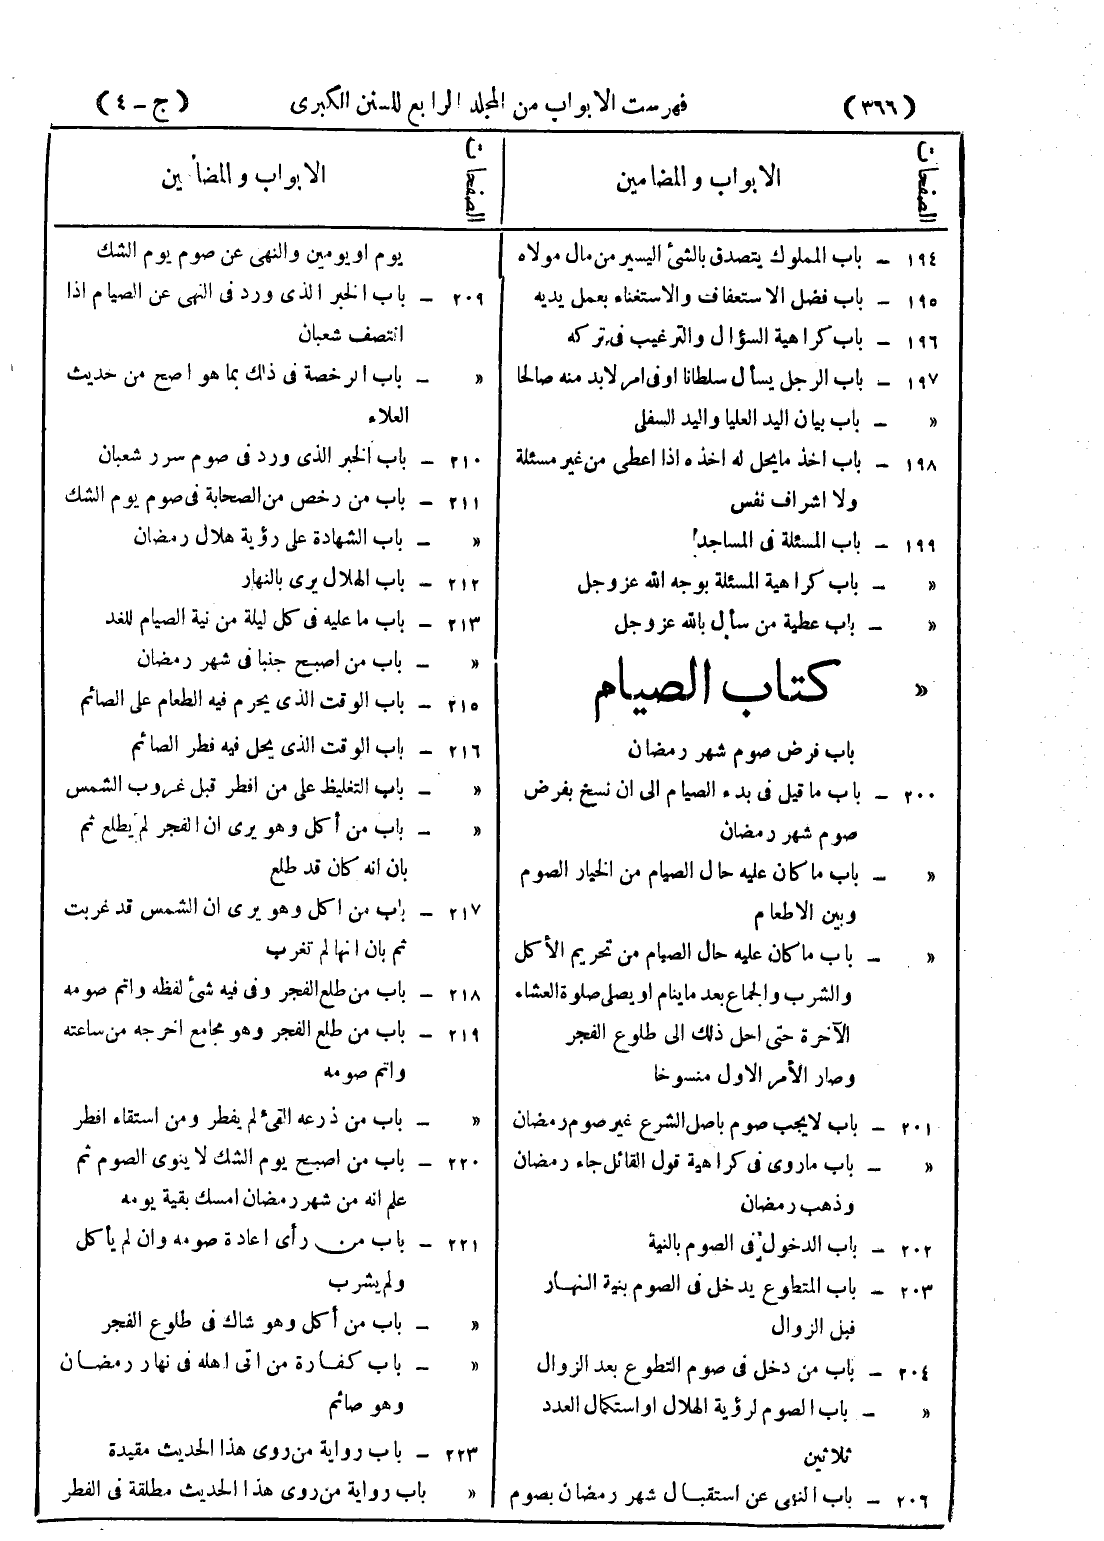 (٣٦٦) فهرست الابواب من المجلد الرابع للسنن الكبرى (ج - ٤)
الصفحات الابواب والمضامين
١٩٤ - باب المملوك يتصدق بالشئ اليسير من مال مولاه
١٩٥ - باب فضل الاستعفاف والاستغناء بعمل يديه
١٩٦ - باب كراهية السؤال والترغيب فى تركه
١٩٧ - باب الرجل يسأل سلطانا اوفى امر لابد منه صالحا
« - باب بيان اليد العليا واليد السفلى
١٩٨ - باب اخذ مايحل له اخذه اذا اعطى من غير مسئلة
ولا اشراف نفس
١٩٩ - باب المسئلة فى المساجد
« - باب كراهية المسئلة بوجه الله عزوجل
« - باب عطية من سأل بالله عزوجل
« كتاب الصيام
باب فرض صوم شهر رمضان
٢٠٠ - باب ماقيل فى بدء الصيام الى ان نسخ بفرض
صوم شهر رمضان
« - باب ماكان عليه حال الصيام من الخيار الصوم
وبين الاطعام
« - باب ماكان عليه حال الصيام من تحريم الأكل
والشرب والجماع بعد ماينام اويصلى صلوة العشاء
الآخرة حتى احل ذلك الى طلوع الفجر
وصار الأمر الاول منسوخا
٢٠١ - باب لايجب صوم باصل الشرع غير صوم رمضان
« - باب ماروى فى كراهية قول القائل جاء رمضان
وذهب رمضان
٢٠٢ - باب الدخول فى الصوم بالنية
٢٠٣ - باب المتطوع يدخل فى الصوم بنية النهار
قبل الزوال
٢٠٤ - باب من دخل فى صوم التطوع بعد الزوال
« - باب الصوم لرؤية الهلال اواستكمال العدد
ثلاثين
٢٠٦ - باب النهى عن استقبال شهر رمضان بصوم
الصفحات الابواب والمضامين
يوم اويومين والنهى عن صوم يوم الشك
٢٠٩ - باب الخبر الذى ورد فى النهى عن الصيام اذا
انتصف شعبان
« - باب الرخصة فى ذلك بما هو اصح من حديث
العلاء
٢١٠ - باب الخبر الذى ورد فى صوم سرر شعبان
٢١١ - باب من رخص من الصحابة فى صوم يوم الشك
« - باب الشهادة على رؤية هلال رمضان
٢١٢ - باب الهلال يرى بالنهار
٢١٣ - باب ما عليه فى كل ليلة من نية الصيام للغد
« - باب من اصبح جنبا فى شهر رمضان
٢١٥ - باب الوقت الذى يحرم فيه الطعام على الصائم
٢١٦ - باب الوقت الذى يحل فيه فطر الصائم
« - باب التغليظ على من افطر قبل غروب الشمس
« - باب من أكل وهو يرى ان الفجر لم يطلع ثم
بان انه كان قد طلع
٢١٧ - باب من اكل وهو يرى ان الشمس قد غربت
ثم بان انها لم تغرب
٢١٨ - باب من طلع الفجر وفى فيه شئ لفظه واتم صومه
٢١٩ - باب من طلع الفجر وهو مجامع اخرجه من ساعته
واتم صومه
« - باب من ذرعه القئ لم يفطر ومن استقاء افطر
٢٢٠ - باب من اصبح يوم الشك لا ينوى الصوم ثم
علم انه من شهر رمضان امسك بقية يومه
٢٢١ - باب من رأى اعادة صومه وان لم يأكل
ولم يشرب
« - باب من أكل وهو شاك فى طلوع الفجر
« - باب كفارة من اتى اهله فى نهار رمضان
وهو صائم
٢٢٣ - باب رواية من روى هذا الحديث مقيدة
« باب رواية من روى هذا الحديث مطلقة فى الفطر